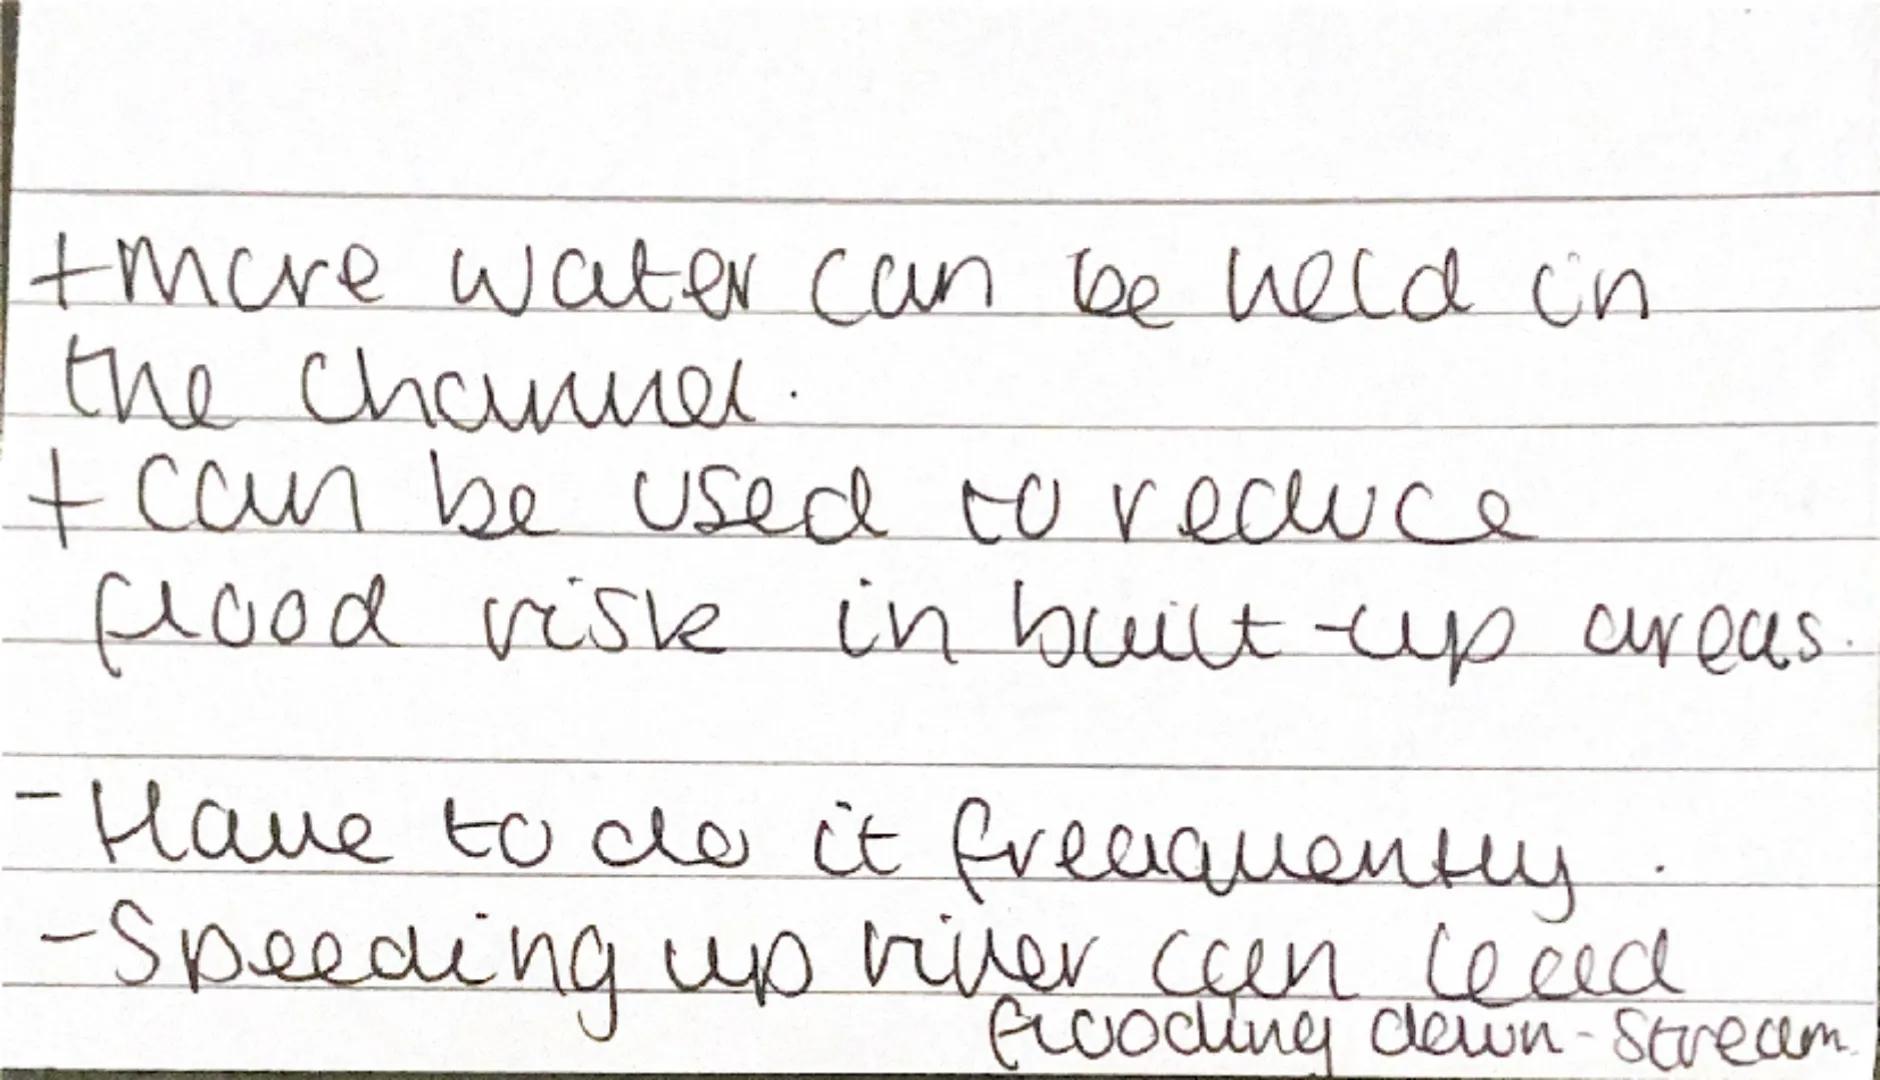 +more water can be held in
the channel.
+ can be used to reduce
flood risk in built-up areas.
- Have to do it freaquently.
- Speeding up river can lead
flooding down-stream.